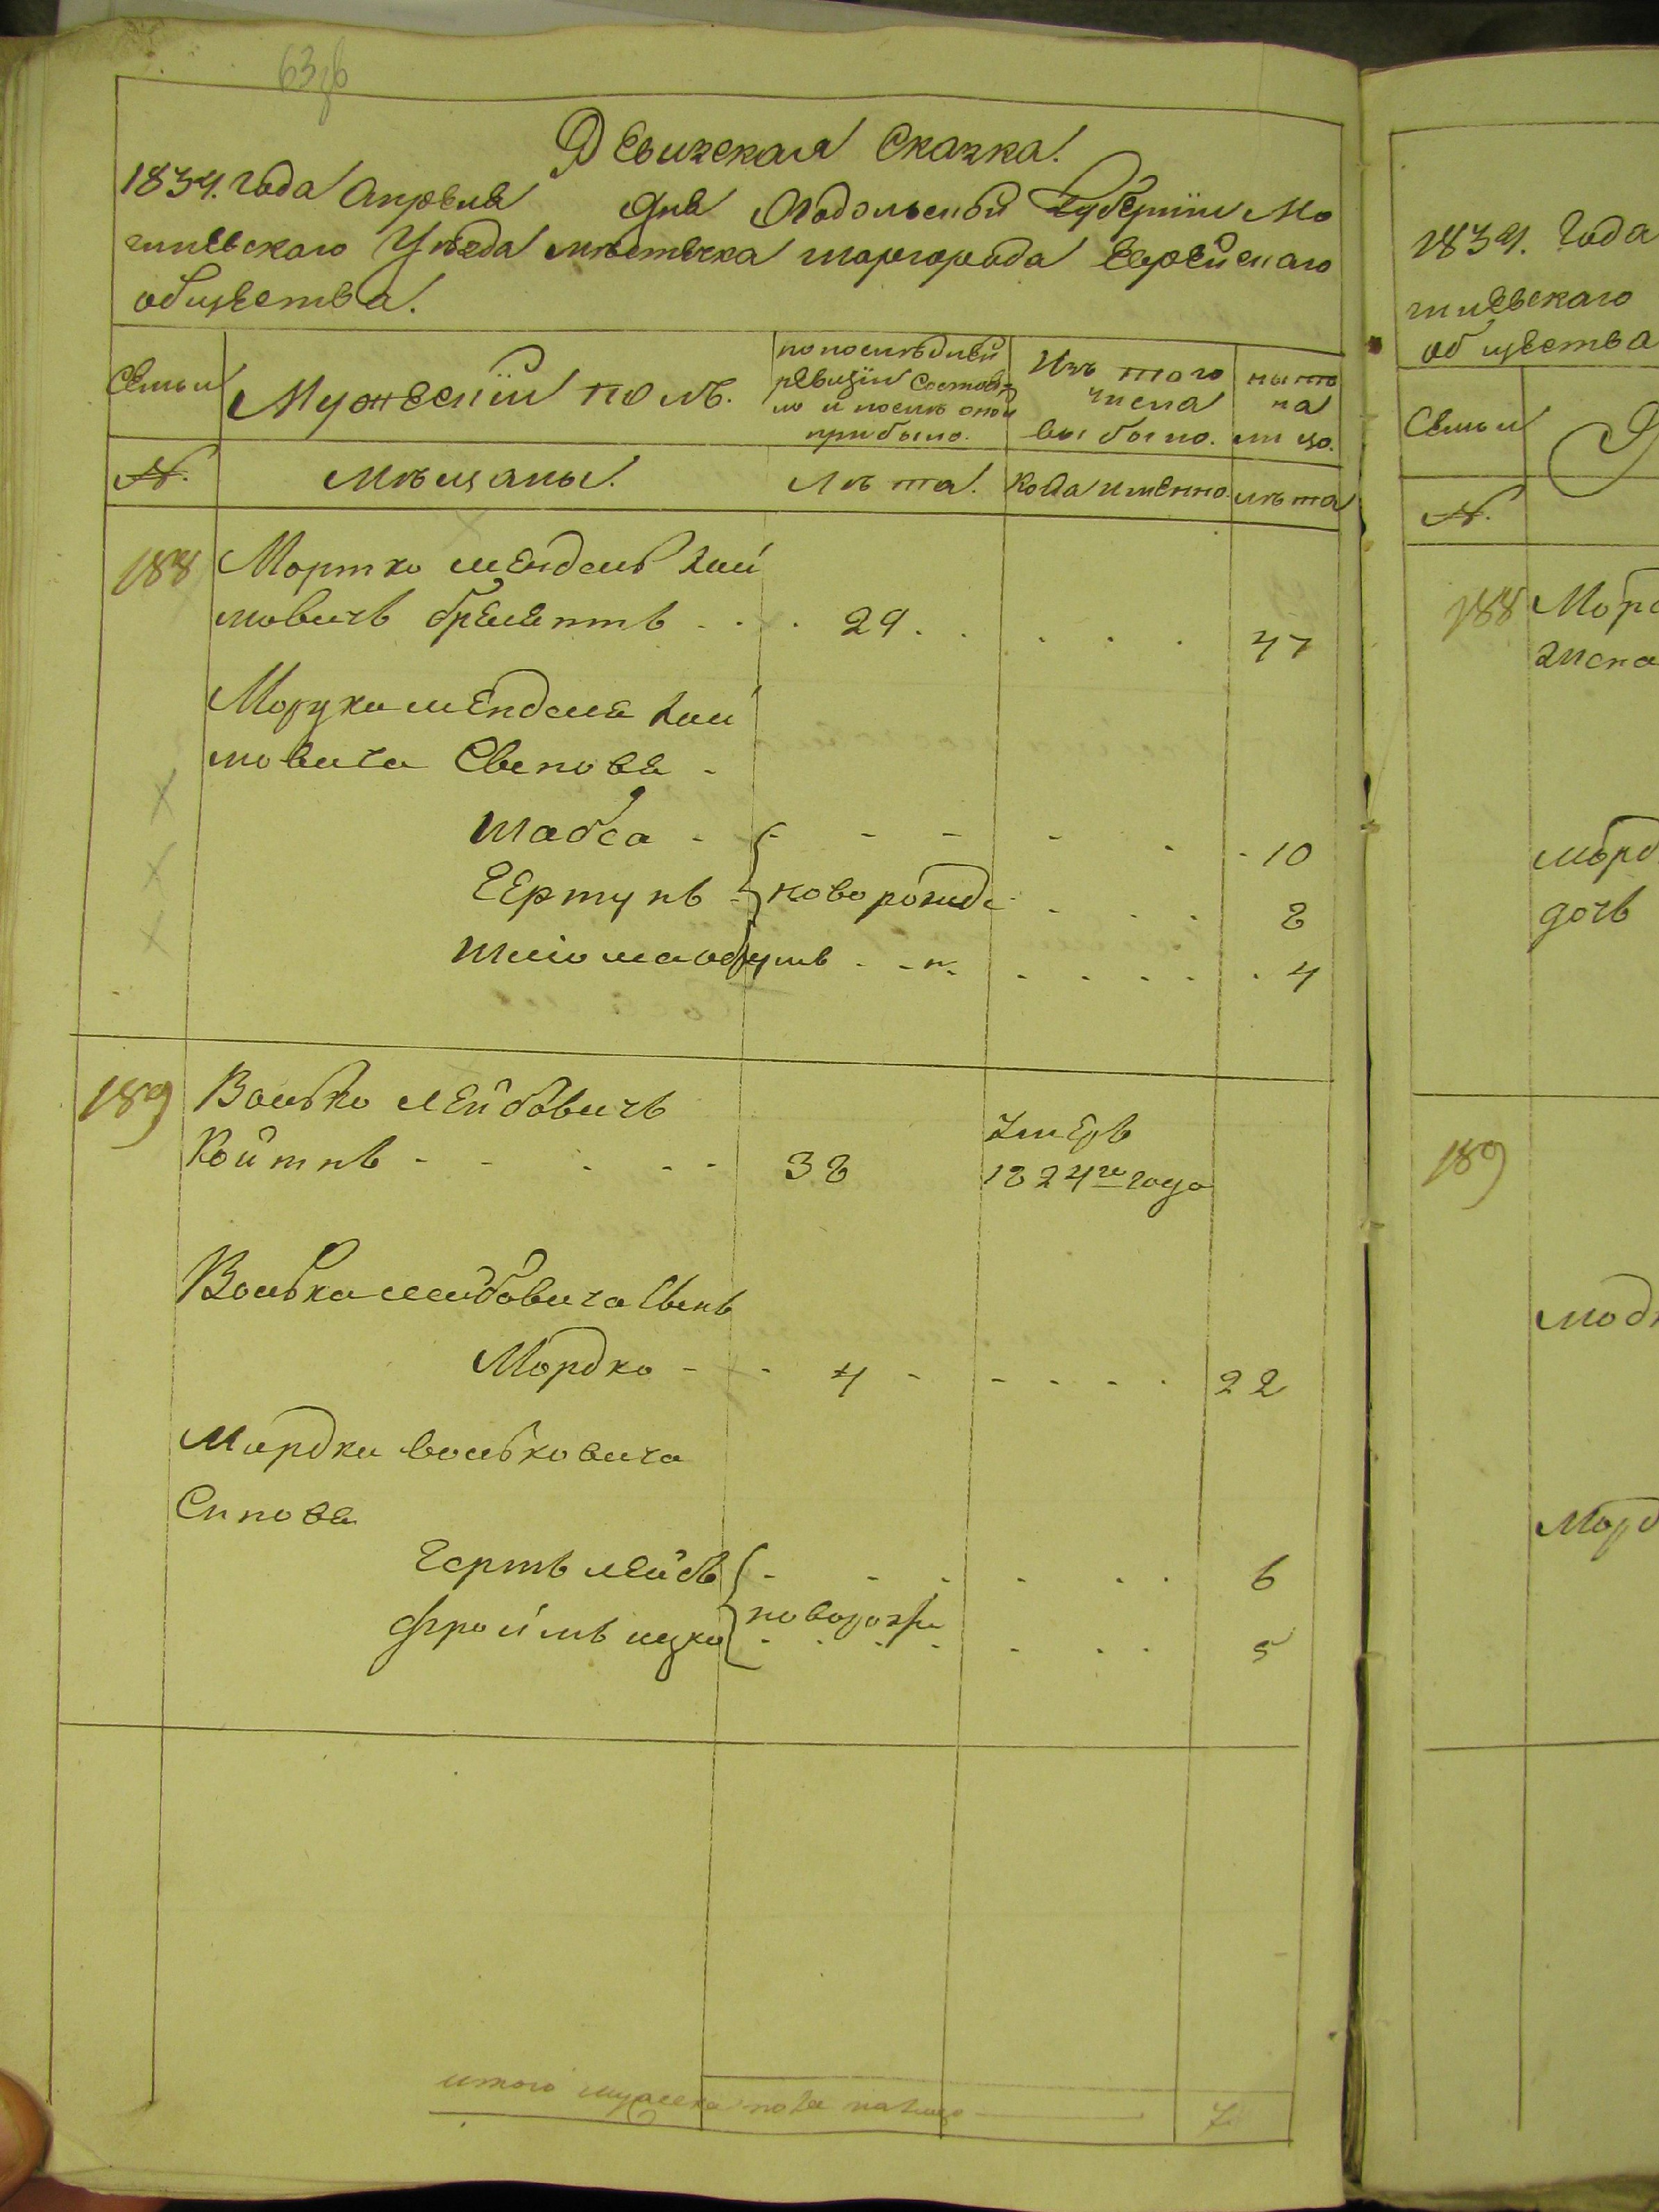 63
Ревизская Сказка.
1834. года Апреля дня Подольской Губернии Мо
гилевскаго Уѣзда мѣстечка шаргорода Еврейскаго
общества.
Семьи
Мужескій полъ.
по послѣдней
ревизіи состоя-
ло и послѣ оной
прибыло.
Изъ того
числа
выбыло.
ныне
на
лицо.
№.
Мѣщаны.
Лѣта.
Когда именно.
лѣта
188 Мортко мендель хай
мовичъ 29. 47
Морука менделя хай
мовича Сынове
шабса 10
Гершунъ новорожде 8
4
189 Волько лейбовичъ
Койтпъ 38 умеръ
1824го года
Волька лейбовича Сынъ
Мордко 4 22
Мордки вольковича
Синове
Гершъ лейбъ 6
Фроимъ ицко новорожде 5
итого мужеска пола налицо 7
1834. Года
гилевскаго
общества
Семьи
№.
188 Морд
жена
морд
дочь
189
Морд